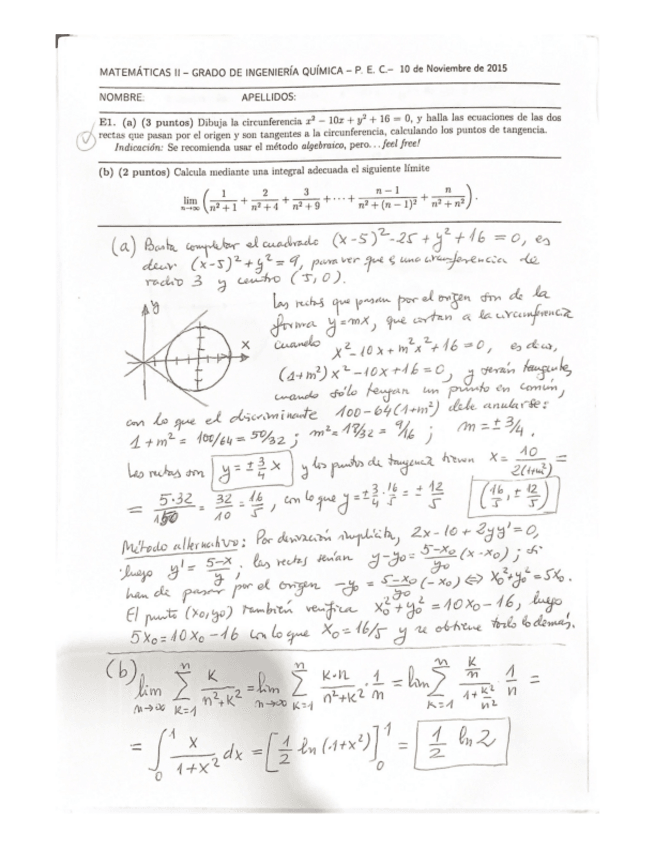 MATEMÁTICAS II – GRADO DE INGENIERÍA QUÍMICA – P. E. C.– 10 de Noviembre de 2015
NOMBRE: APELLIDOS:
E1. (a) (3 puntos) Dibuja la circunferencia x² − 10x + y² + 16 = 0, y halla las ecuaciones de las dos
rectas que pasan por el origen y son tangentes a la circunferencia, calculando los puntos de tangencia.
Indicación: Se recomienda usar el método algebraico, pero... feel free!
(b) (2 puntos) Calcula mediante una integral adecuada el siguiente límite
lim n→∞ ( 1/(n²+1) + 2/(n²+4) + 3/(n²+9) + ⋯ + (n−1)/(n²+(n−1)²) + n/(n²+n²) ).
(a) Basta completar el cuadrado (x-5)²-25+y²+16=0, es
decir (x-5)²+y²=9, para ver que es una circunferencia de
radio 3 y centro (5,0).
y
x
Las rectas que pasan por el origen son de la
forma y=mx, que cortan a la circunferencia
cuando x²-10x+m²x²+16=0, es decir,
(1+m²)x²-10x+16=0, y serán tangentes
cuando sólo tengan un punto en común,
con lo que el discriminante 100-64(1+m²) debe anularse:
1+m² = 100/64 = 50/32 ; m² = 18/32 = 9/16 ; m = ± 3/4 .
Las rectas son y = ± 3/4 x y los puntos de tangencia tienen x = 10/(2(1+m²)) =
= 5·32/50 = 32/10 = 16/5 , con lo que y = ± 3/4 · 16/5 = ± 12/5 (16/5, ± 12/5)
Método alternativo: Por derivación implícita, 2x-10+2yy'=0,
luego y' = (5-x)/y ; las rectas serían y-y₀ = (5-x₀)/y₀ (x-x₀) ; si
han de pasar por el origen -y₀ = (5-x₀)/y₀ (-x₀) ⇔ x₀²+y₀² = 5x₀.
El punto (x₀,y₀) también verifica x₀²+y₀² = 10x₀-16, luego
5x₀ = 10x₀-16 con lo que x₀ = 16/5 y se obtiene todo lo demás.
(b) lim n→∞ Σ k=1 n k/(n²+k²) = lim n→∞ Σ k=1 n k·n/(n²+k²) · 1/n = lim Σ k=1 n (k/n)/(1+k²/n²) · 1/n =
= ∫₀¹ x/(1+x²) dx = [1/2 ln(1+x²)]₀¹ = 1/2 ln 2